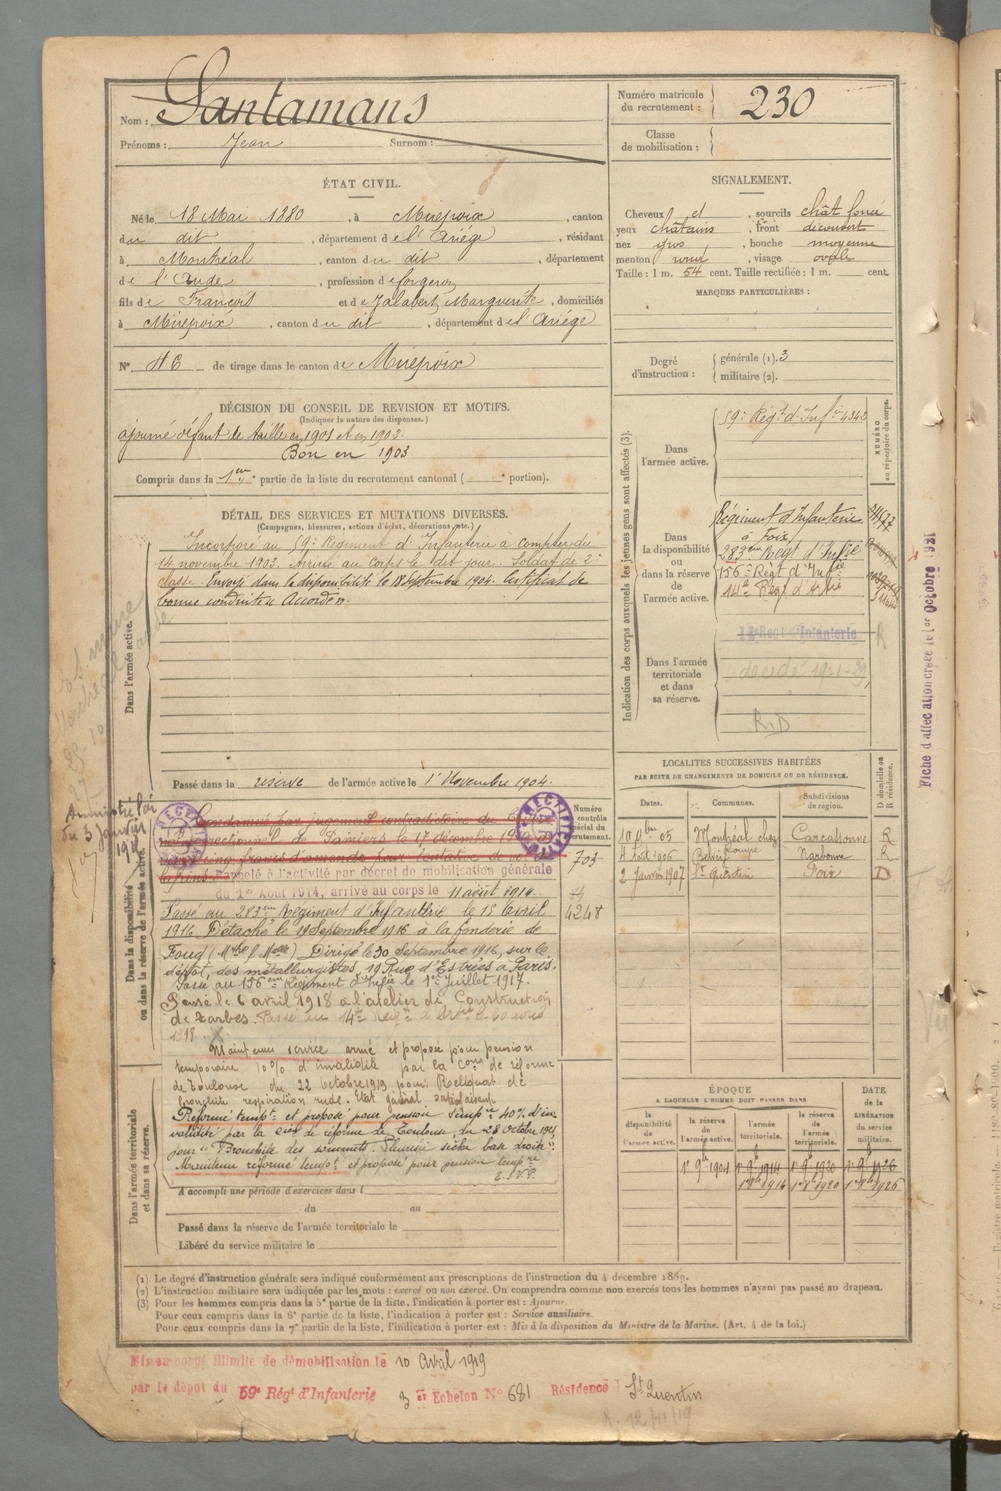 Nom : Santamans
Prénoms : Jean Surnom :
Numéro matricule du recrutement : 230
Classe de mobilisation :
ÉTAT CIVIL.
Né le 18 Mai 1880, à Mirepoix, canton
du dit, département de l'Ariége, résidant
à Montréal, canton du dit, département
de l'Aude, profession de forgeron
fils de François et de Jalabert Marguerite, domiciliés
à Mirepoix, canton du dit, département de l'Ariége
N° 46 de tirage dans le canton de Mirepoix
SIGNALEMENT.
Cheveux et, sourcils chât foncé
yeux châtains, front découvert
nez gros, bouche moyenne
menton rond, visage ovale
Taille : 1 m. 54 cent. Taille rectifiée : 1 m. cent.
MARQUES PARTICULIÈRES :
Degré d'instruction : générale (1). 3
militaire (2).
DÉCISION DU CONSEIL DE REVISION ET MOTIFS.
(Indiquer la nature des dispenses.)
ajourné défaut de taille en 1901 et en 1902.
Bon en 1903
Compris dans la 1ère partie de la liste du recrutement cantonal ( portion).
DÉTAIL DES SERVICES ET MUTATIONS DIVERSES.
(Campagnes, blessures, actions d'éclat, décorations, etc.)
Dans l'armée active.
Incorporé au 59e Regiment d'Infanterie à compter du
14 novembre 1903. Arrivé au corps le dit jour. Soldat de 2e
classe. Envoyé dans la disponibilité le 18 Septembre 1904. Certificat de
bonne conduite Accordé.
Passé dans la réserve de l'armée active le 1er Novembre 1904.
Indication des corps auxquels les jeunes gens sont affectés (3).
NUMÉRO au répertoire du corps.
Dans l'armée active.
59e Régt d'Infie 4342
Dans la disponibilité ou dans la réserve de l'armée active.
Régiment d'Infanterie
à Foix
283ème Régt d'Infie
156e Régt d'Infie
14e Régt d'Artie
Dans l'armée territoriale et dans sa réserve.
R.D
Fiche d'affectation créée le 1er Octobre 1921
LOCALITÉS SUCCESSIVES HABITÉES
PAR SUITE DE CHANGEMENTS DE DOMICILE OU DE RÉSIDENCE.
Dates. Communes. Subdivisions de région. D domicile ou R résidence.
Montréal chez Carcassonne R
4 Août 1906 Narbonne R
2 Janvier 1907 St Quentin Foix D
Dans la disponibilité ou dans la réserve de l'armée active.
Condamné par jugement contradictoire du
correctionnel de Pamiers le 17 décembre
Rappelé à l'activité par décret de mobilisation générale
du 1er Août 1914, arrivé au corps le 11 août 1914.
Passé au 283ème Régiment d'Infanterie le 15 Avril
1916 Détaché le 19 Septembre 1916 à la fonderie de
Foug (Mthe & Mlle) Dirigé le 30 Septembre 1916, sur le
dépôt, des métallurgistes, 19 Rue d'Estrées à Paris.
Passé au 156ème Régiment d'Infie le 1er Juillet 1917.
Passé le 6 avril 1918 à l'atelier de Construction
de Tarbes.
Numéro contrôle spécial du recrutement.
703
4248
Maintenu service armé et proposé pour pension
temporaire 10% d'invalidité par la Com de réforme
de Toulouse du 22 octobre 1919 pour: Reliquat de
bronchite respiration rude. Etat général satisfaisant
Dans l'armée territoriale et dans sa réserve.
Réformé tempt et proposé pour pension temp 40% d'in
validité par la Cion de réforme de Toulouse, du 28 octobre 1921,
pour "Bronchite des sommets. Pleurésie sèche base droite".
Maintenu réformé tempt et proposé pour pension tempre
T.S.V.P.
A accompli une période d'exercices dans l
du au
Passé dans la réserve de l'armée territoriale le
Libéré du service militaire le
ÉPOQUE
A LAQUELLE L'HOMME DOIT PASSER DANS
la disponibilité de l'armée active. la réserve de l'armée active. l'armée territoriale. la réserve de l'armée territoriale.
DATE de la LIBÉRATION du service militaire.
1er 9bre 1904 1er 9bre 1914 1er 9bre 1920 1er 9bre 1926
(1) Le degré d'instruction générale sera indiqué conformément aux prescriptions de l'instruction du 4 décembre 1889.
(2) L'instruction militaire sera indiquée par les mots : exercé ou non exercé. On comprendra comme non exercés tous les hommes n'ayant pas passé au drapeau.
(3) Pour les hommes compris dans la 5e partie de la liste, l'indication à porter est : Ajourné.
Pour ceux compris dans la 6e partie de la liste, l'indication à porter est : Service auxiliaire.
Pour ceux compris dans la 7e partie de la liste, l'indication à porter est : Mis à la disposition du Ministre de la Marine. (Art. 4 de la loi.)
Mis en congé illimité de démobilisation le 10 Avril 1919
par le dépôt du 59e Régt d'Infanterie 3 er Echelon N° 681 Résidence St Quentin
R. 12/11/19